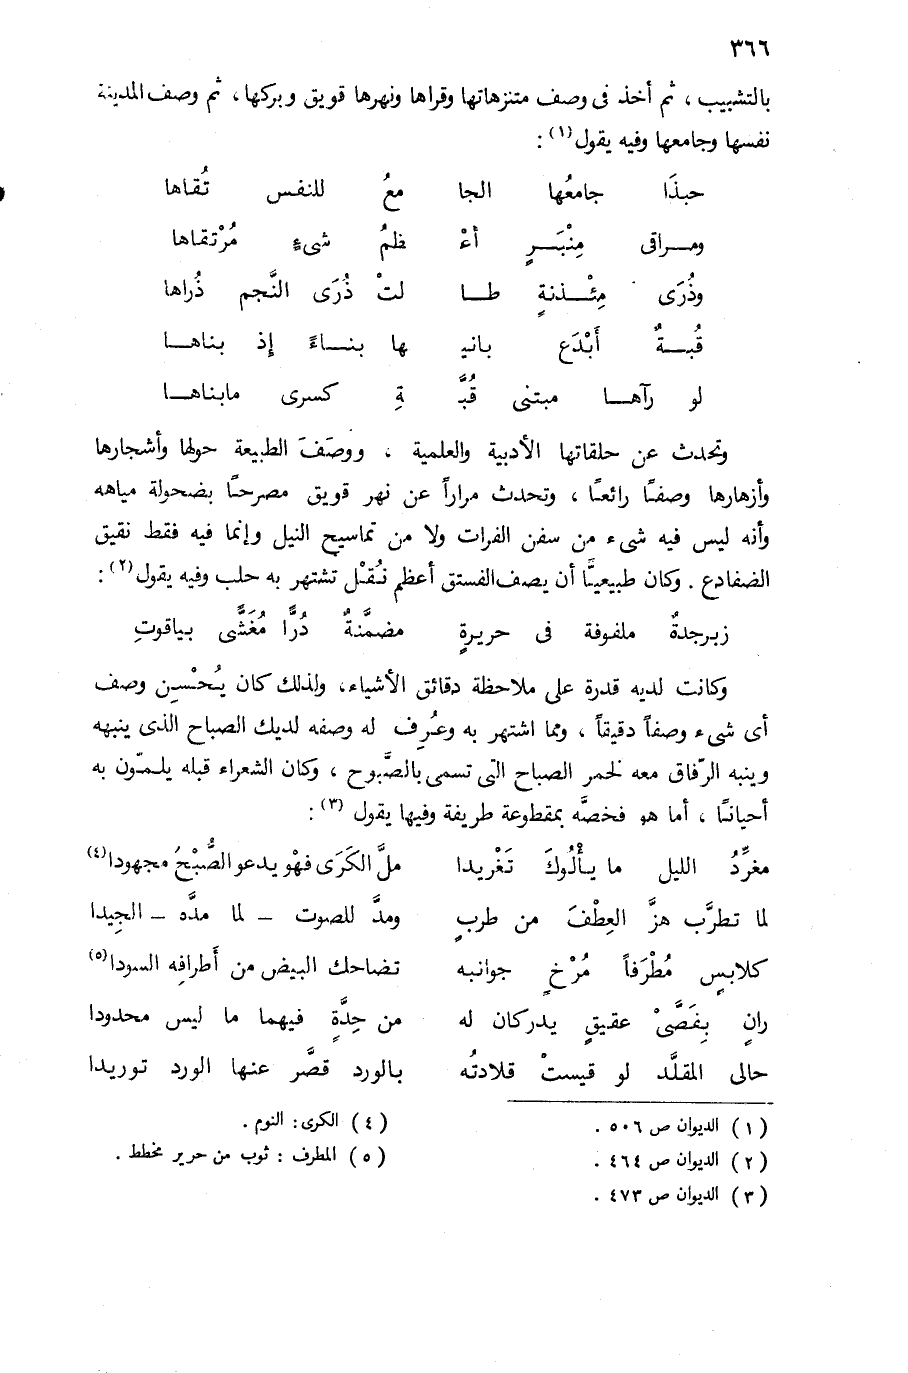 ٣٦٦
بالتشبيب ، ثم أخذ فى وصف متنزهاتها وقراها ونهرها قويق وبركها ، ثم وصف المدينة
نفسها وجامعها وفيه يقول (١) :
حبذَا جامعُها الجا معُ للنفس تُقاها
ومـراقى مِنْبَـرٍ أعْ ظمُ شىءٍ مُرْتقاها
وذُرَى مِئْـذنةٍ طـا لتْ ذُرَى النَّجم ذُراها
قُبـةٌ أَبْدَع بانيـ ها بنـاءً إذ بناهـا
لو رآهـا مبتنى قُبَّـ ةِ كسرى مابناهـا
وتحدث عن حلقاتها الأدبية والعلمية ، ووصَفَ الطبيعة حولها وأشجارها
وأزهارها وصفًا رائعًا ، وتحدث مراراً عن نهر قويق مصرحًا بضحولة مياهه
وأنه ليس فيه شىء من سفن الفرات ولا من تماسيح النيل وإنما فيه فقط نقيق
الضفادع . وكان طبيعيًّا أن يصف الفستق أعظم نُقْل تشتهر به حلب وفيه يقول (٢) :
زبرجدةٌ ملفوفة فى حريرةٍ مضمَّنةٌ دُرًّا مُغَشًّى بياقوتِ
وكانت لديه قدرة على ملاحظة دقائق الأشياء، ولذلك كان يُحْسِن وصف
أى شىء وصفاً دقيقاً ، ومما اشتهر به وعُرِف له وصفه لديك الصباح الذى ينبهه
وينبه الرّفاق معه لخمر الصباح التى تسمى بالصَّبوح ، وكان الشعراء قبله يلمّون به
أحيانًا ، أما هو فخصَّه بمقطوعة طريفة وفيها يقول (٣) :
مغرِّدُ الليل ما يأْلُوكَ تَغْريدا ملَّ الكَرَى فهْو يدعو الصُّبْحَ مجهودا (٤)
لما تطرَّب هزَّ العِطْفَ من طربٍ ومدَّ للصوت – لما مدَّه – الجِيدا
كلابسٍ مُطْرَفاً مُرْخٍ جوانبه تضاحك البيض من أطرافِه السودا (٥)
رانٍ بِفَصَّىْ عقيقٍ يدركان له من حِدَّةٍ فيهما ما ليس محدودا
حالى المقلَّد لو قيستْ قلادتُه بالورد قصَّر عنها الورد توريدا
(١) الديوان ص ٥٠٦ .
(٢) الديوان ص ٤٦٤ .
(٣) الديوان ص ٤٧٣ .
(٤) الكرى : النوم .
(٥) المطرف : ثوب من حرير مخطط .